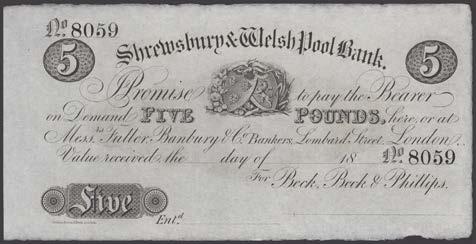 No 8059
5 Shrewsbury & Welsh Pool Bank. 5
I Promise to pay the Bearer
on Demand FIVE POUNDS, here, or at
Messrs Fuller, Banbury & Co. Bankers, Lombard Street, London.
Value received the day of 18 No 8059
For Beck, Beck & Phillips.
Five
Entd.